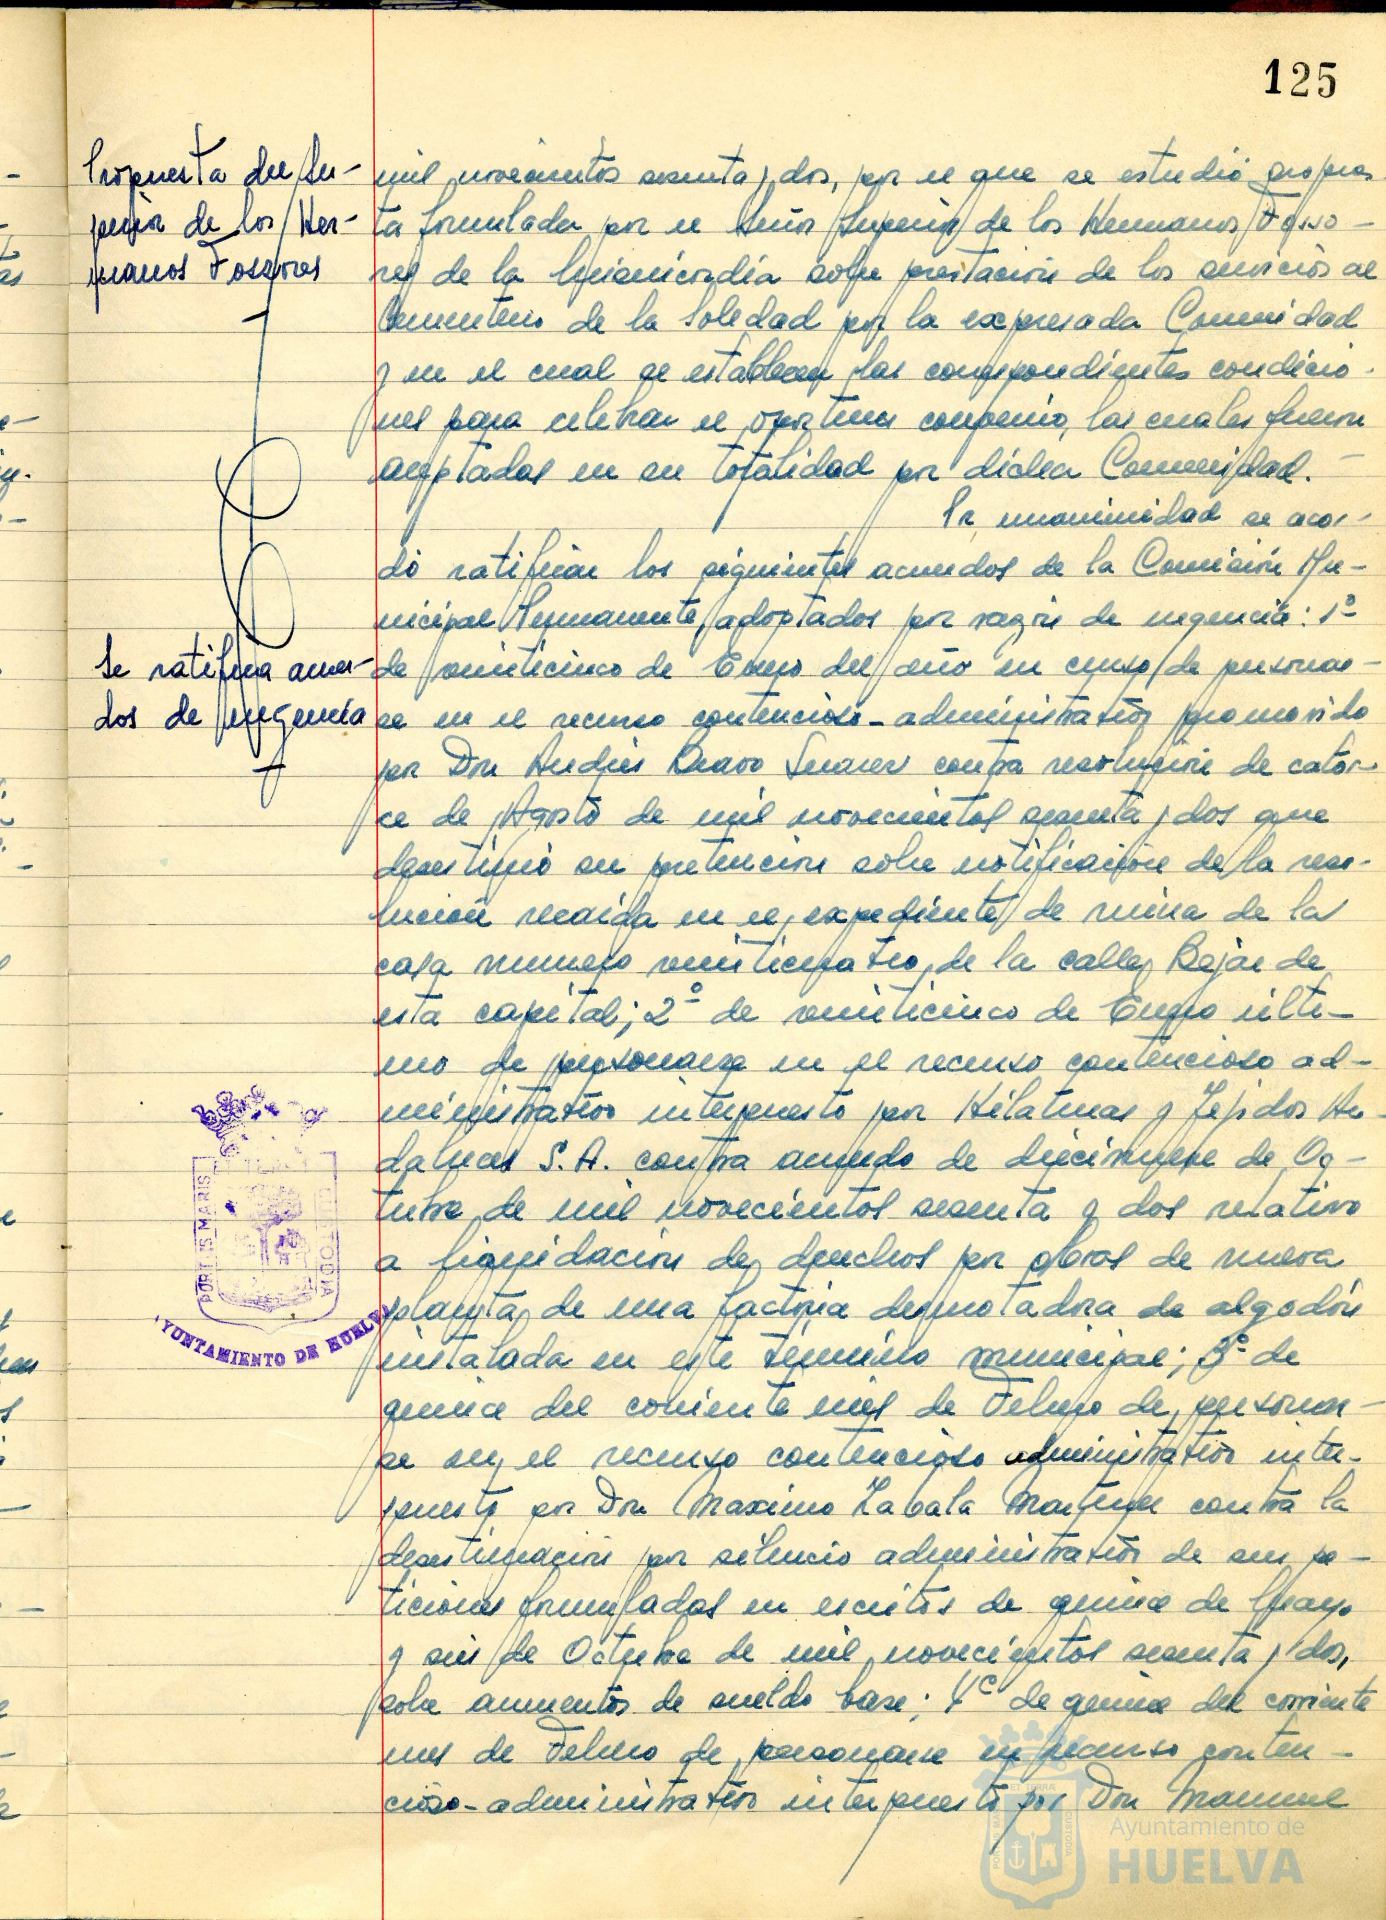 125
Propuesta del Su-
perior de los Her-
manos Fosores
mil novecientos sesenta y dos, por el que se estudió propues-
ta formulada por el Señor Superior de los Hermanos Fosso-
res de la Misericordia sobre prestación de los servicios al
Cementerio de la Soledad por la expresada Comunidad
y en el cual se establecen las correspondientes condicio-
nes para celebrar el oportuno convenio, las cuales fueron
aceptadas en su totalidad por dicha Comunidad.
Por unanimidad se acor-
dó ratificar los siguientes acuerdos de la Comisión Mu-
nicipal Permanente, adoptados por razón de urgencia: 1º
Se ratifica acuer-
dos de urgencia
de veinticinco de Enero del año en curso, de personar-
se en el recurso contencioso-administrativo promovido
por Don Andrés Bravo Suarez contra resolución de cator-
ce de Agosto de mil novecientos sesenta y dos que
desestimó su pretención sobre notificación de la reso-
lución recaída en el expediente de ruina de la
casa numero veinticuatro de la calle Bejar de
esta capital; 2º de veinticinco de Enero ulti-
mo de personarse en el recurso contencioso ad-
ministrativo interpuesto por Hilaturas y Tejidos An-
daluces S.A. contra acuerdo de diecinueve de Oc-
tubre de mil novecientos sesenta y dos relativo
a liquidación de derechos por obras de nueva
planta de una factoria desmotadora de algodón
instalada en este término municipal; 3º de
quince del corriente mes de Febrero de personar-
se en el recurso contencioso administrativo inter-
puesto por Don Maximo Zabala Martinez contra la
desestimación por silencio administrativo de sus pe-
ticiones formuladas en escritos de quince de Mayo
y seis de Octubre de mil novecientos sesenta y dos,
sobre aumentos de sueldo base; 4º de quince del corriente
mes de Febrero de personarse en recurso conten-
cioso-administrativo interpuesto por Don Manuel
PORTUS MARIS
ET TERRAE
CUSTODIA
AYUNTAMIENTO DE HUELVA
PORTUS MARIS
ET TERRAE
CUSTODIA
Ayuntamiento de
HUELVA